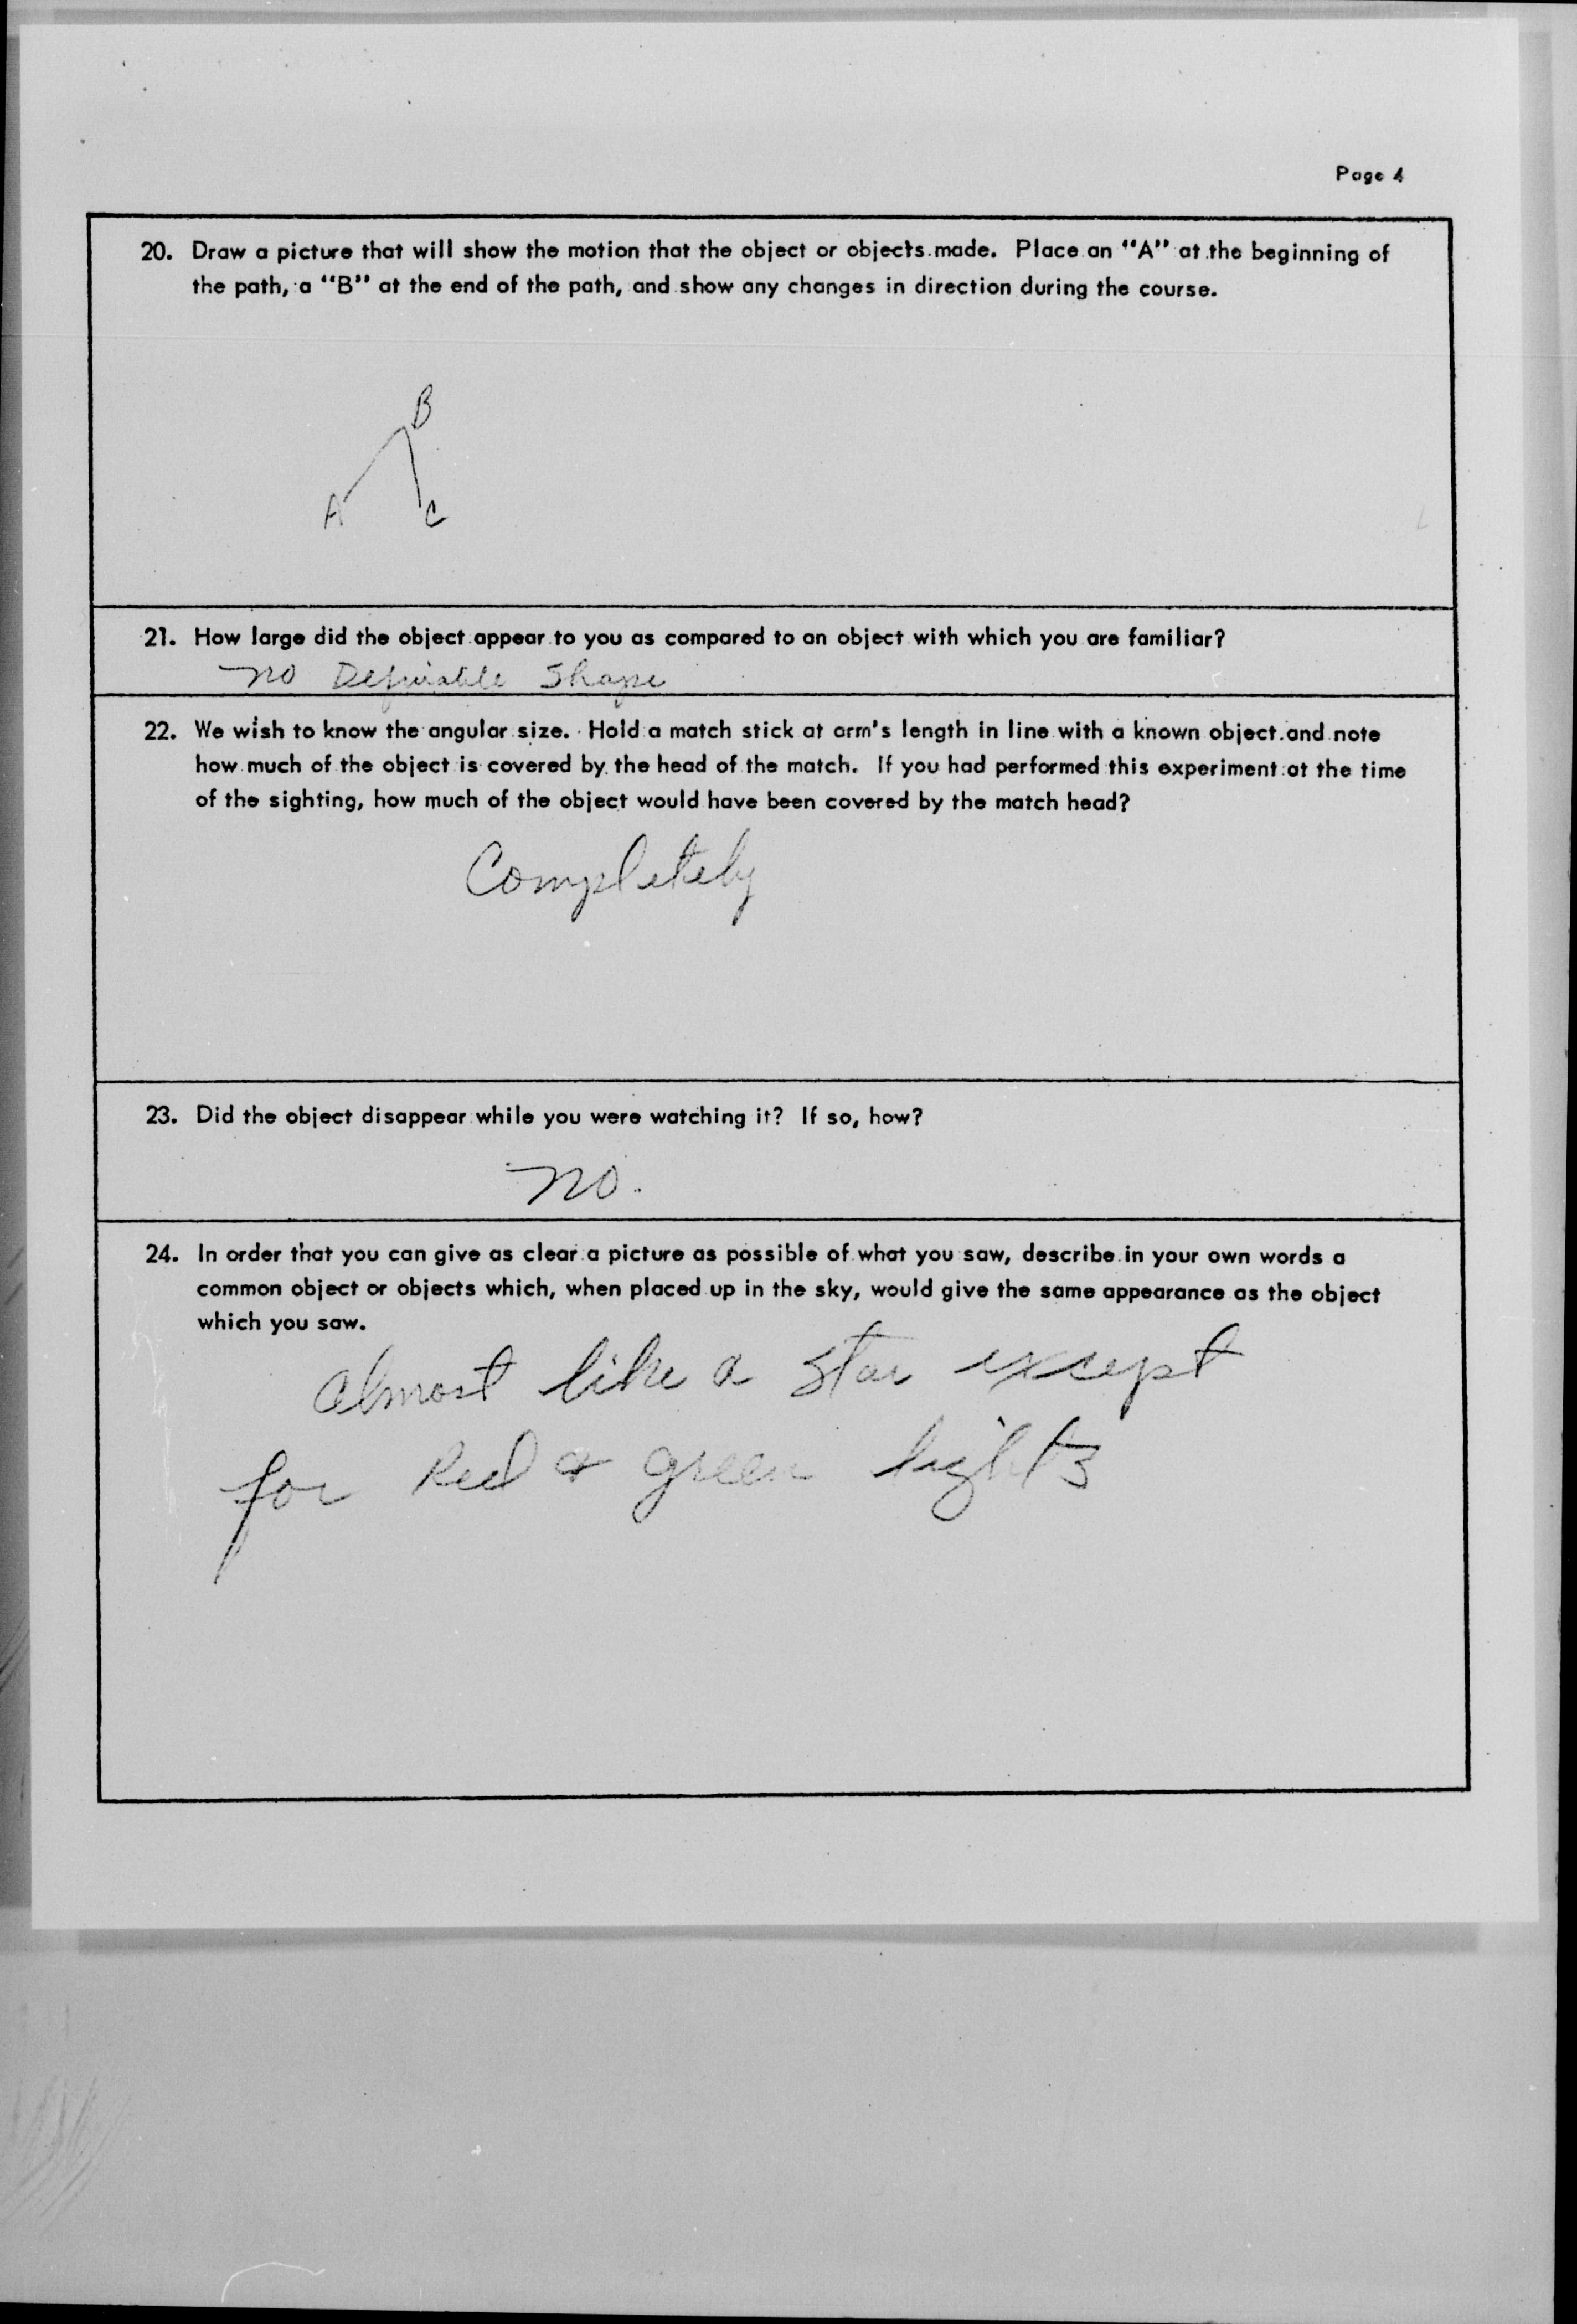 Page 4
20. Draw a picture that will show the motion that the object or objects made. Place an "A" at the beginning of
the path, a "B" at the end of the path, and show any changes in direction during the course.
B
A
C
21. How large did the object appear to you as compared to an object with which you are familiar?
no Definable Shape
22. We wish to know the angular size. Hold a match stick at arm's length in line with a known object and note
how much of the object is covered by the head of the match. If you had performed this experiment at the time
of the sighting, how much of the object would have been covered by the match head?
Completely
23. Did the object disappear while you were watching it? If so, how?
no.
24. In order that you can give as clear a picture as possible of what you saw, describe in your own words a
common object or objects which, when placed up in the sky, would give the same appearance as the object
which you saw.
almost like a star except
for Red & green lights